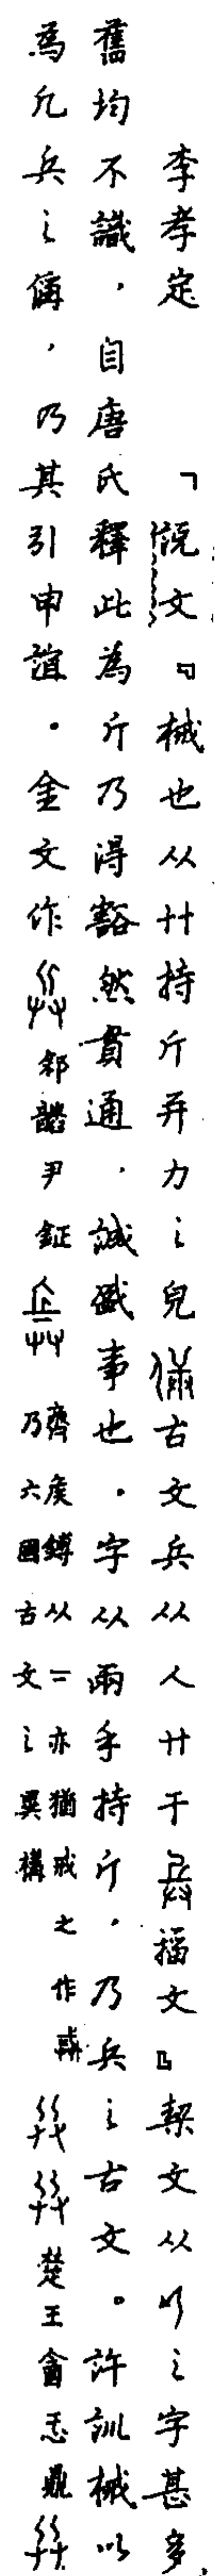 李孝定　「說文『械也从廾持斤并力之皃古文兵从人廾干籀文』契文从之字甚多
舊均不識，自唐氏釋此為斤乃得豁然貫通，誠盛事也。字从兩手持斤，乃兵之古文。許訓械以
為凡兵之偁，乃其引申誼。金文作郐𬣳尹鉦齊侯鎛从二亦猶戒之作乃六國古文之異構楚王酓忎鼎